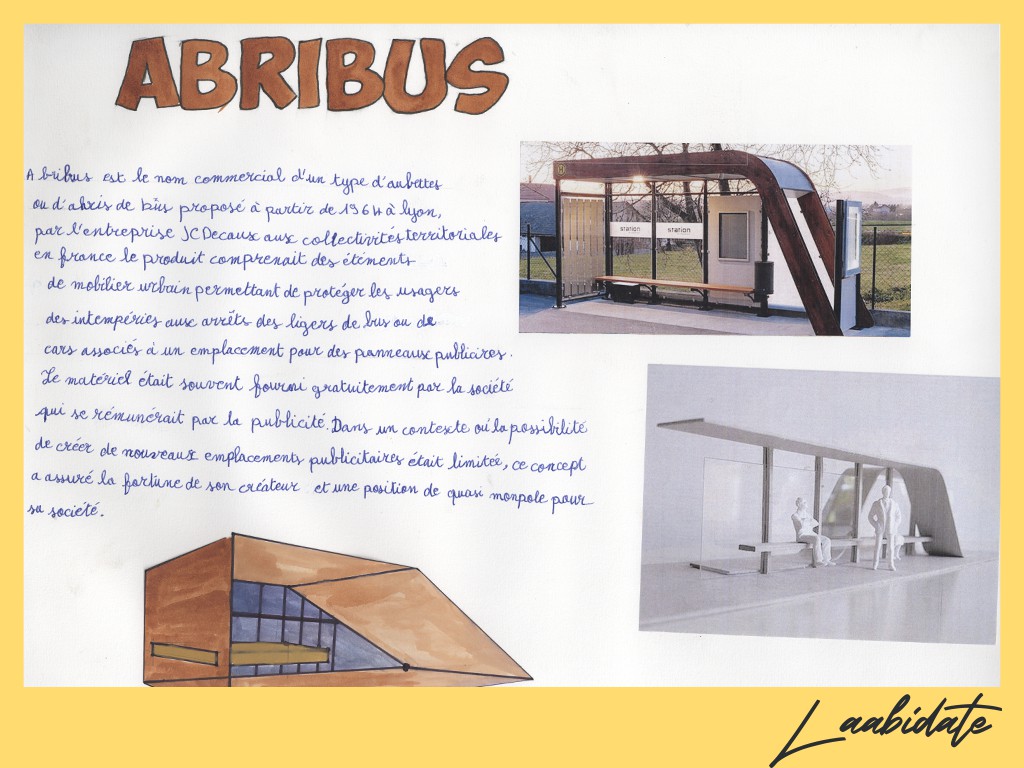 ABRIBUS
Abribus est le nom commercial d'un type d'aubettes
ou d'abris de bus proposé à partir de 1964 à lyon,
par l'entreprise JCDecaux aux collectivités territoriales
en france le produit comprenait des éléments
de mobilier urbain permettant de protéger les usagers
des intempéries aux arrêts des ligers de bus ou de
cars associés à un emplacement pour des panneaux publicires.
Le matériel était souvent fourni gratuitement par la société
qui se rémunérait par la publicité. Dans un contexte où la possibilité
de créer de nouveaux emplacements publicitaires était limitée, ce concept
a assuré la fortune de son créateur et une position de quasi monpole pour
sa société.
H
station station
Laabidate